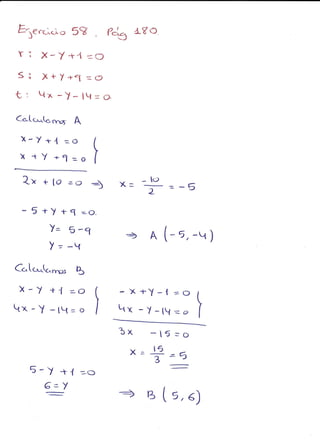 Ejercicio 58. Pág 180
r: x-y+1=0
s: x+y+9=0
t: 4x-y-14=0
Calculamos A
x-y+1=0
x+y+9=0
2x+10=0 ⇒ x= -10/2 = -5
-5+y+9=0.
y= 5-9
y=-4 ⇒ A(-5,-4)
Calculamos B
x-y+1=0 -x+y-1=0
4x-y-14=0 4x-y-14=0
3x -15=0
x= 15/3 =5
5-y+1=0
6=y ⇒ B(5,6)